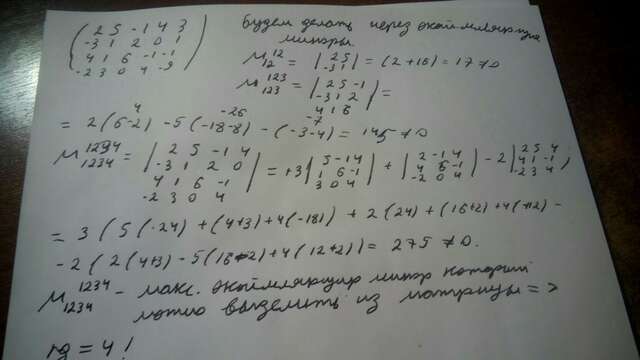 ( 2 5 -1 4 3
-3 1 2 0 1
4 1 6 -1 -1
-2 3 0 4 -9 )
Будем делать через окаймляющие
миноры.
M 12 12 = | 2 5 -3 1 | = (2+15) = 17 ≠ 0
M 123 123 = | 2 5 -1 -3 1 2 4 1 6 | =
4 -26 -7
= 2(6-2) -5(-18-8) -(-3-4) = 145 ≠ 0
M 1234 1234 = | 2 5 -1 4 -3 1 2 0 4 1 6 -1 -2 3 0 4 | = +3 | 5 -1 4 1 6 -1 3 0 4 | + | 2 -1 4 4 6 -1 -2 0 4 | - 2 | 2 5 4 4 1 -1 -2 3 4 |
= 3(5(·24) + (4+3) + 4(-18)) + 2(24) + (16+2) + 4(+12) -
-2(2(4+3) -5(16-2) + 4(12+2)) = 275 ≠ 0.
M 1234 1234 - макс. окаймляющий минор который
можно выделить из матрицы =>
rg = 4!